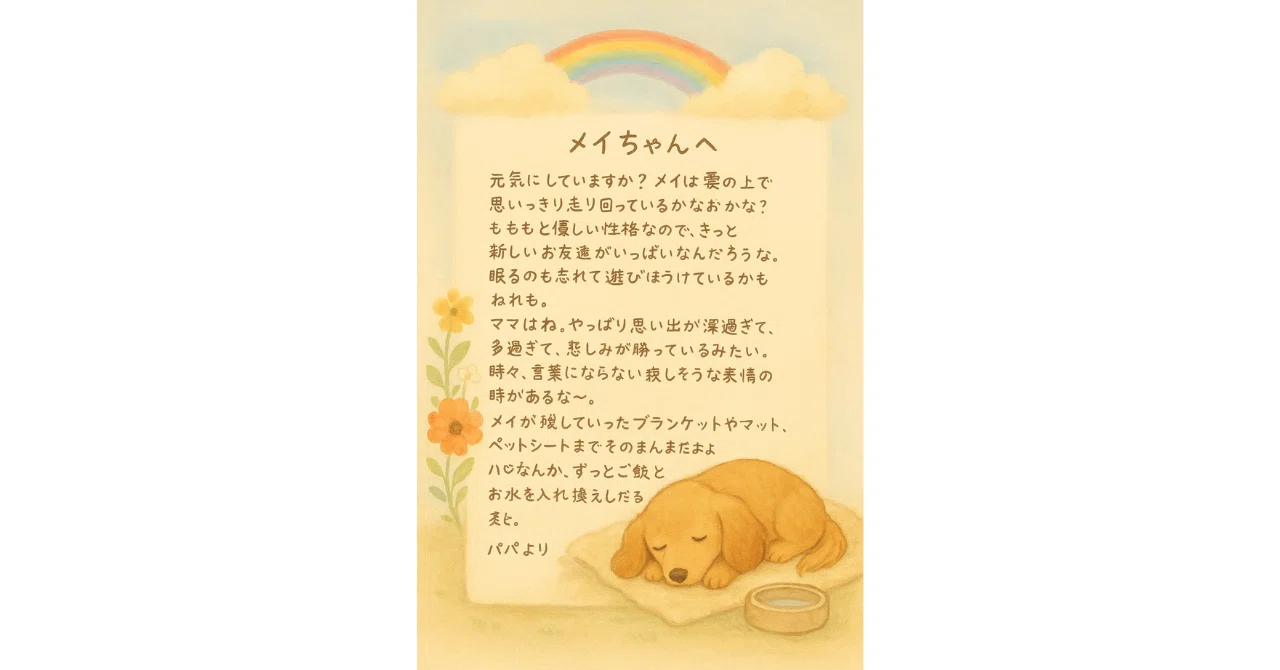 メイちゃんへ
元気にしていますか？メイは雲の上で
思いっきり走り回っているかなおかな？
もももと優しい性格なので、きっと
新しいお友達がいっぱいなんだろうな。
眠るのも忘れて遊びほうけているかも
ねれも。
ママはね。やっぱり思い出が深過ぎて、
多過ぎて、悲しみが勝っているみたい。
時々、言葉にならない寂しそうな表情の
時があるな〜。
メイが残していったブランケットやマット、
ペットシートまでそのまんまだおよ
なんか、ずっとご飯と
お水を入れ換えしだる
パパより